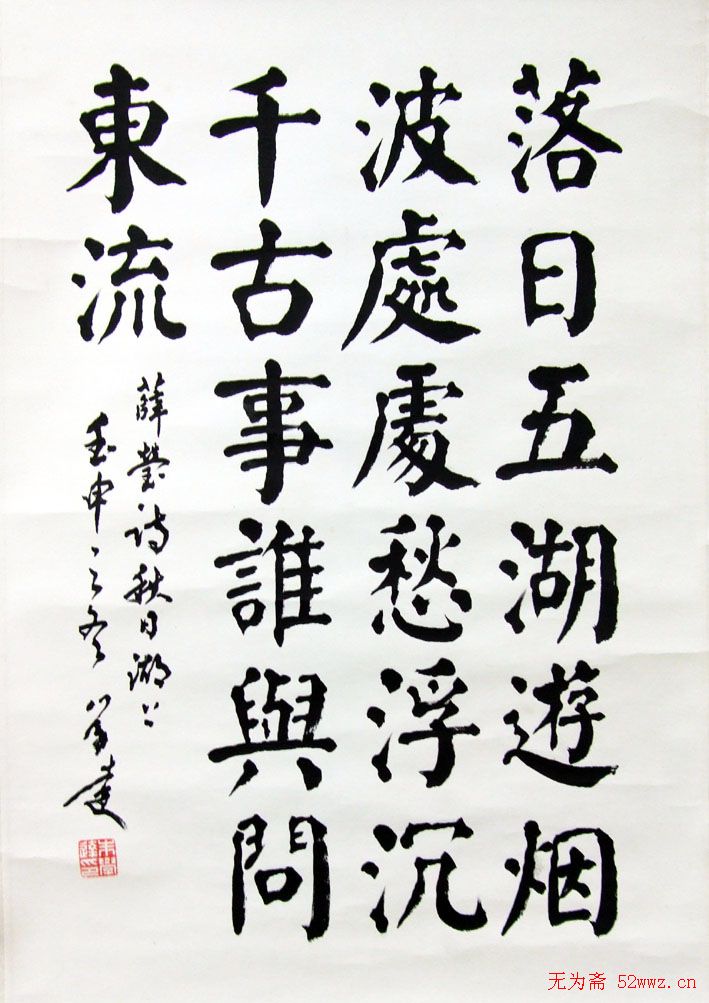 落日五湖遊烟
波處處愁浮沉
千古事誰與問
東流
薛瑩诗秋日湖上
壬申之冬学達
无为斋 52wwz.cn